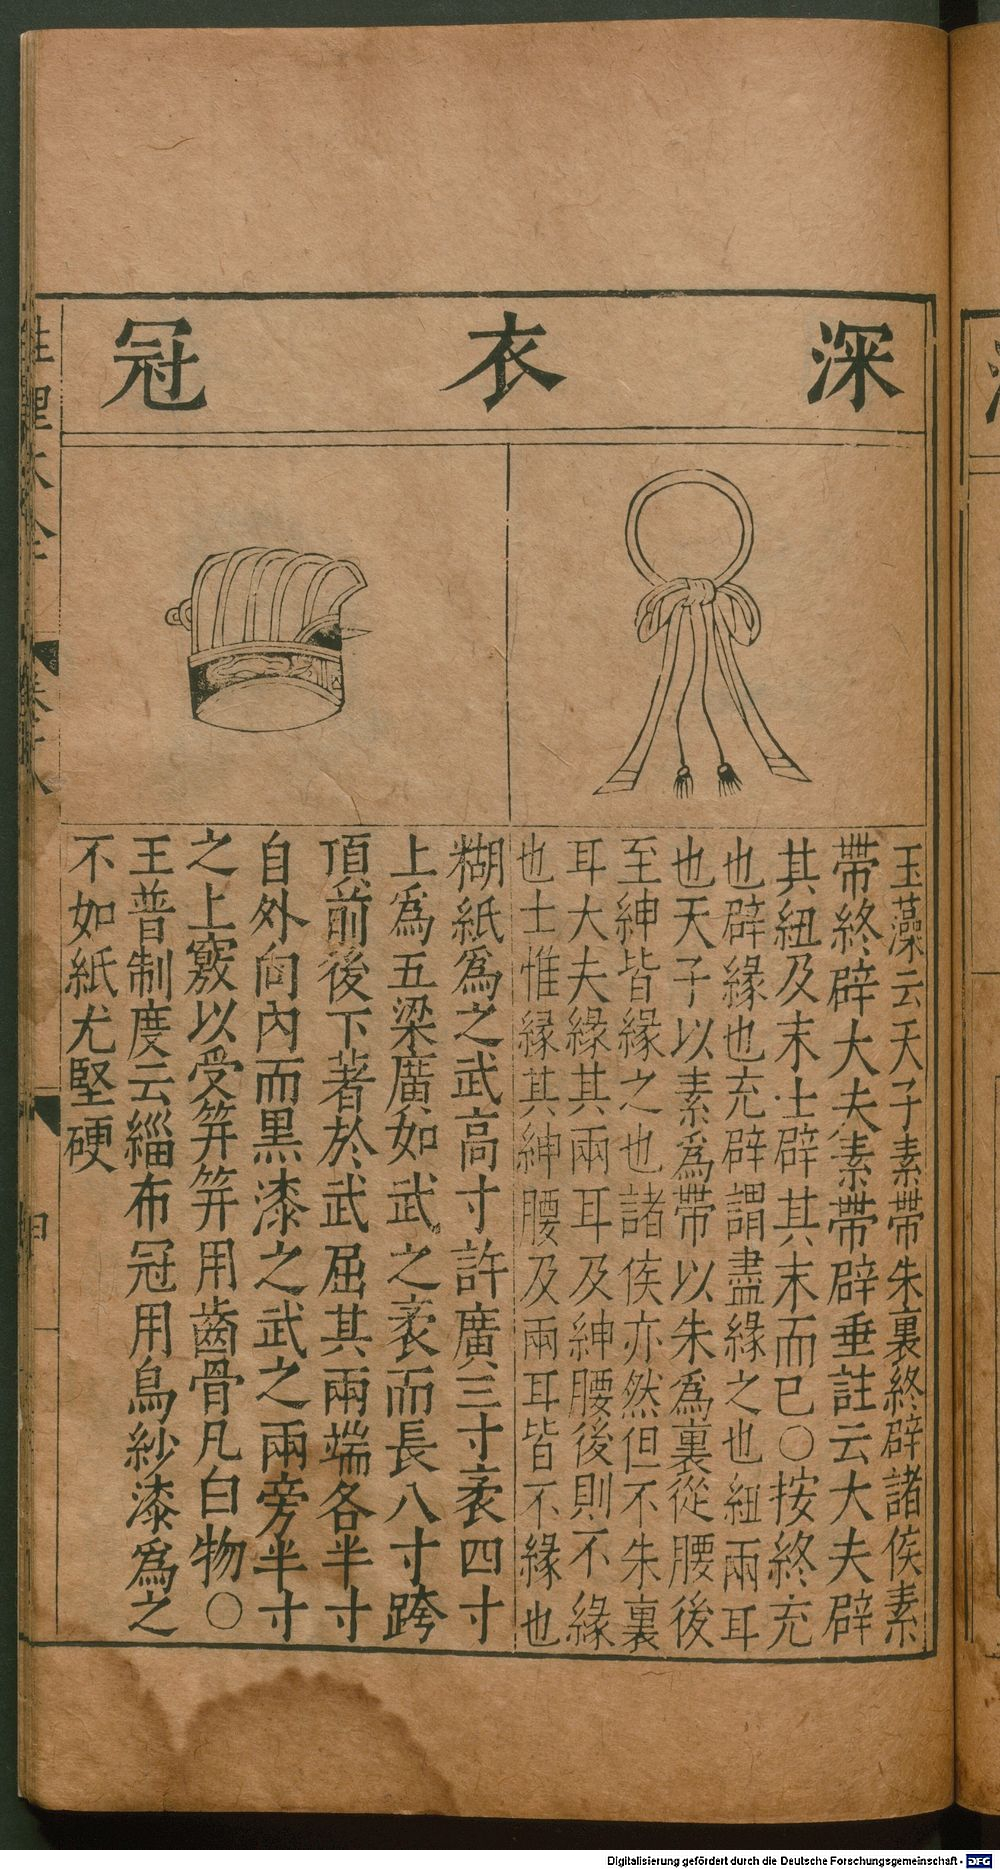 深衣冠
玉藻云天子素帶朱裏終辟諸侯素
帶終辟大夫素帶辟垂註云大夫辟
其紐及末士辟其末而已○按終充
也辟緣也充辟謂盡緣之也紐兩耳
也天子以素爲帶以朱爲裏從腰後
至紳皆緣之也諸侯亦然但不朱裏
耳大夫緣其兩耳及紳腰後則不緣
也士惟緣其紳腰及兩耳皆不緣也
糊紙爲之武高寸許廣三寸袤四寸
上爲五梁廣如武之袤而長八寸跨
頂前後下著於武屈其兩端各半寸
自外向內而黑漆之武之兩旁半寸
之上竅以受笄笄用齒骨凡白物○
王普制度云緇布冠用烏紗漆爲之
不如紙尤堅硬
性理大全
卷十八
四
Digitalisierung gefördert durch die Deutsche Forschungsgemeinschaft - DFG